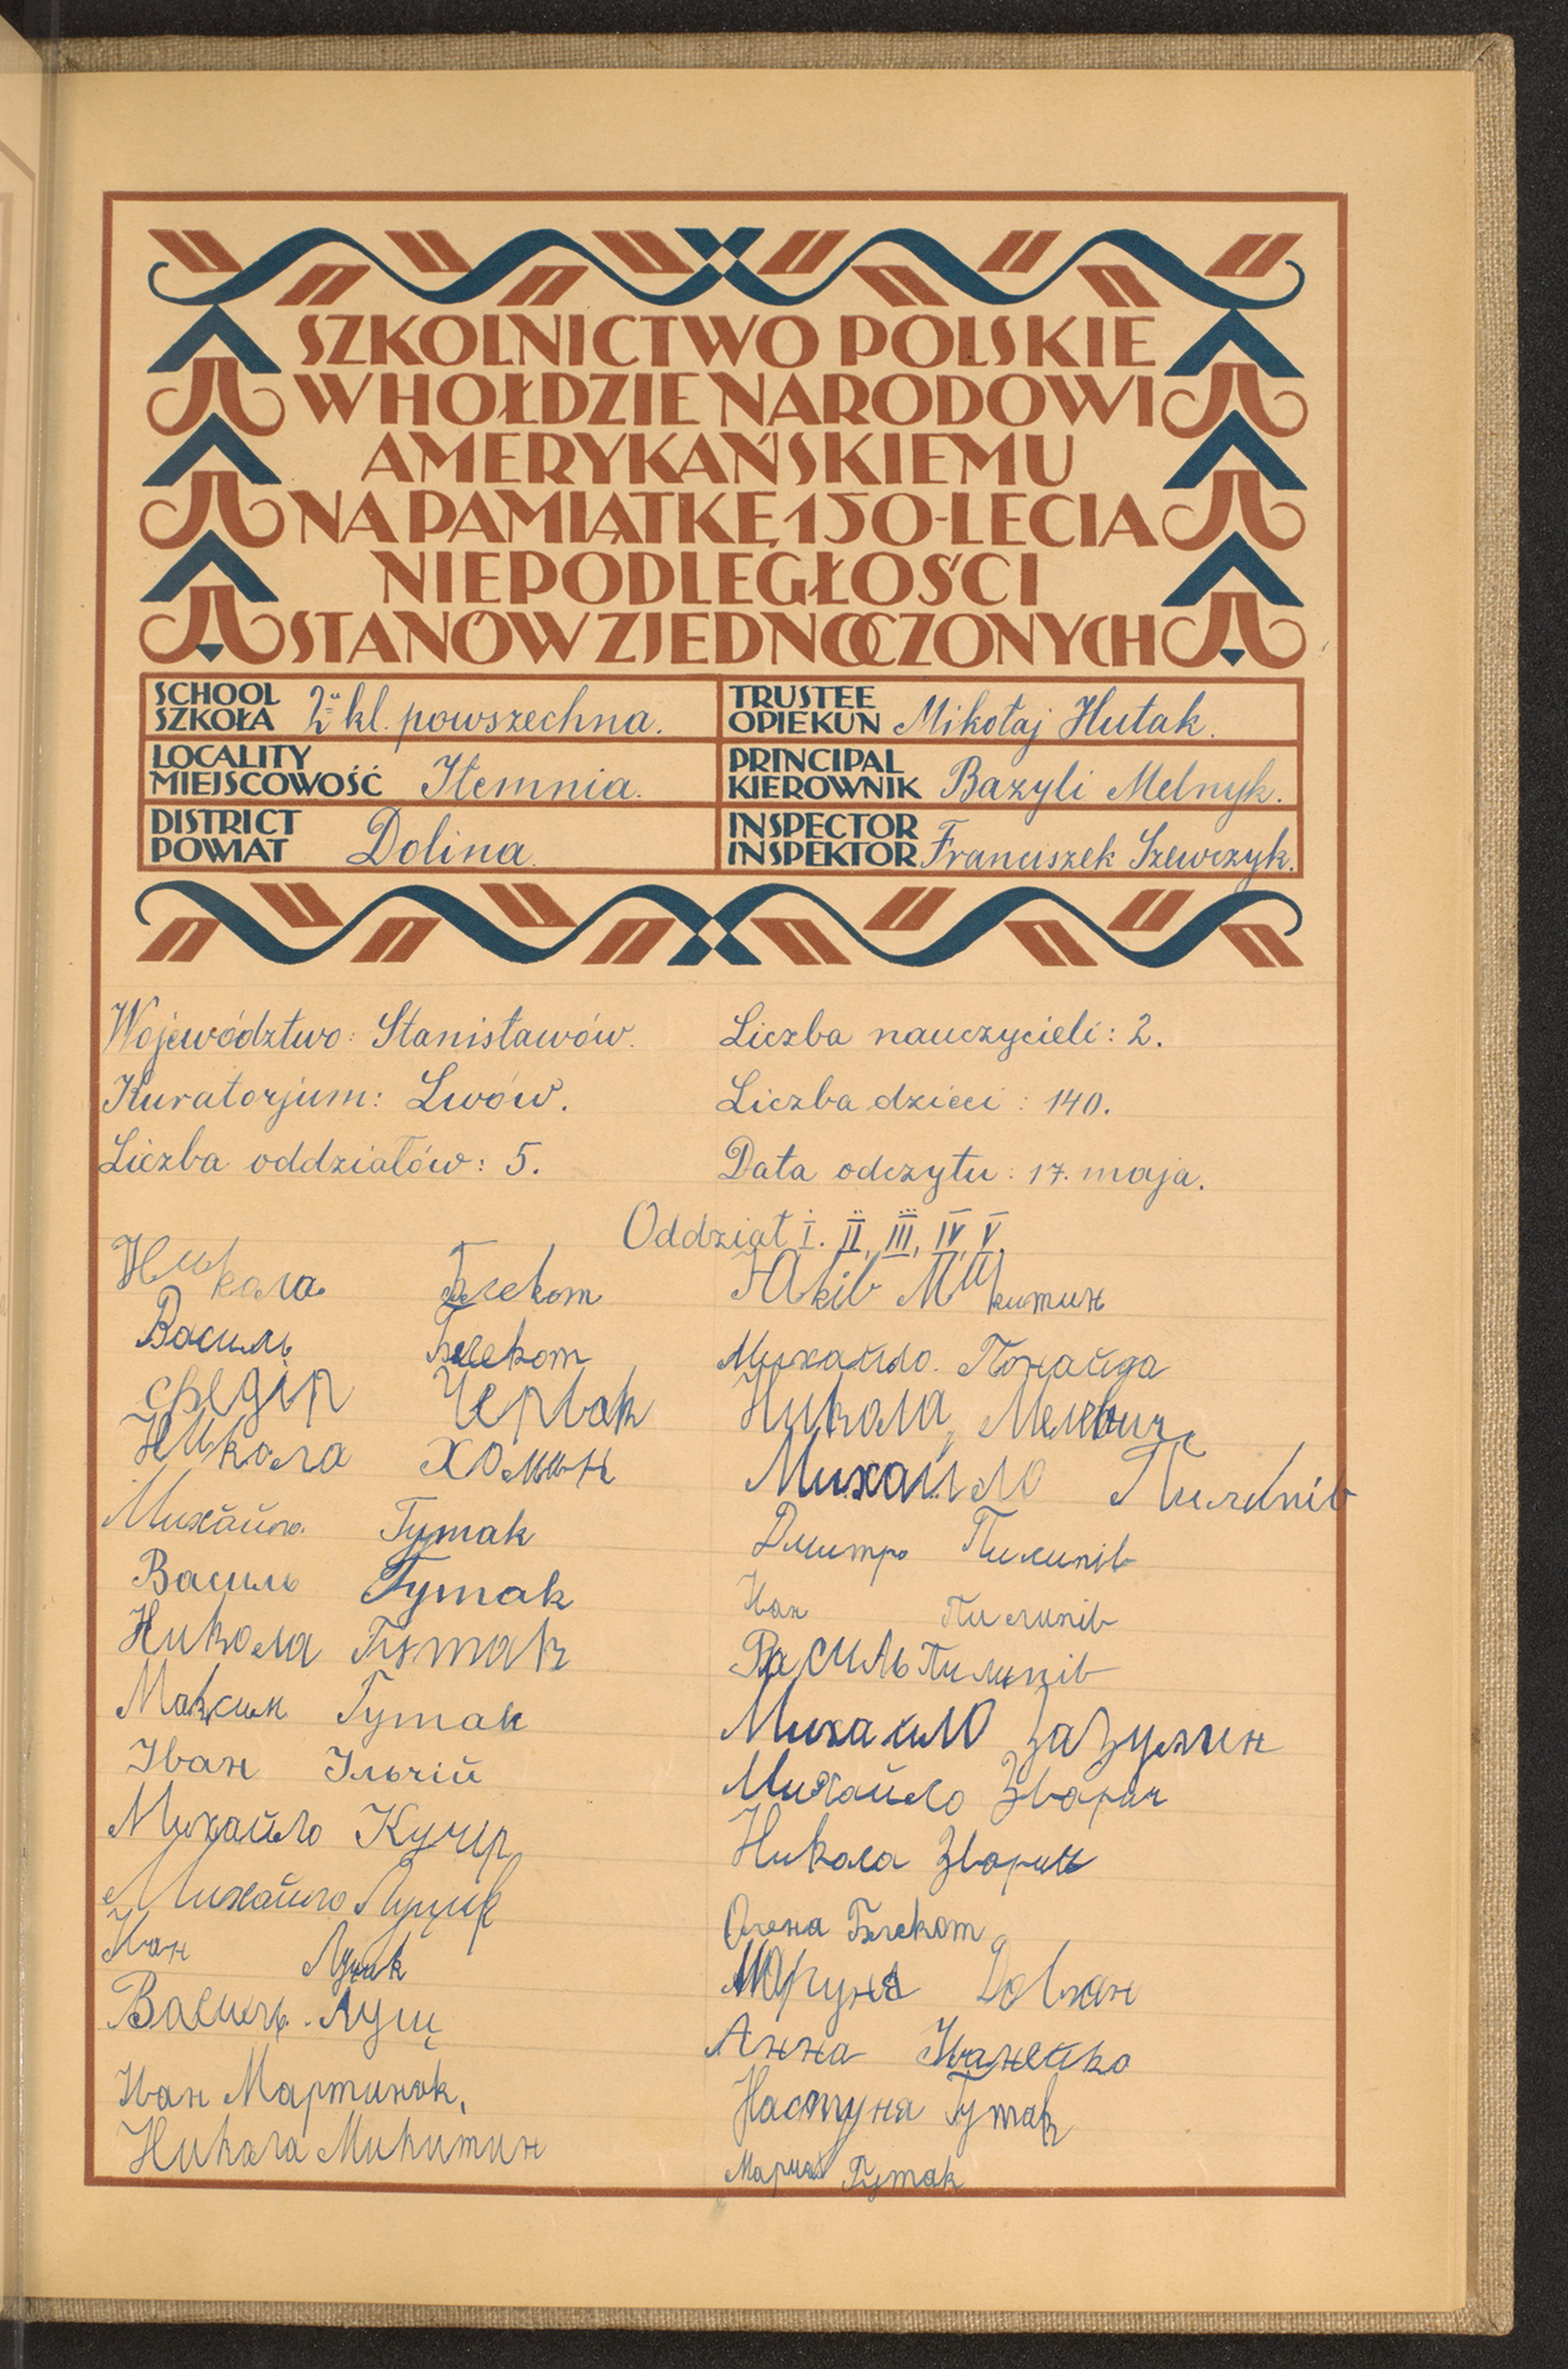 SZKOLNICTWO POLSKIE
W HOŁDZIE NARODOWI
AMERYKAŃSKIEMU
NA PAMIĄTKĘ 150-LECIA
NIEPODLEGŁOŚCI
STANÓW ZJEDNOCZONYCH
SCHOOL
SZKOŁA 2 kl. powszechna.
TRUSTEE
OPIEKUN Mikołaj Hutak.
LOCALITY
MIEJSCOWOŚĆ Ilemnia.
PRINCIPAL
KIEROWNIK Bazyli Melnyk.
DISTRICT
POWIAT Dolina.
INSPECTOR
INSPEKTOR Franciszek Szewczyk.
Województwo: Stanisławów.
Kuratorjum: Lwów.
Liczba oddziałów: 5.
Liczba nauczycieli: 2.
Liczba dzieci: 140.
Data odczytu: 17. maja.
Oddział I. II, III, IV, V.
Никола Блеком
Василь Блеком
Федір Червак
Никола Хомин
Михайло Гутак
Василь Гутак
Никола Гутак
Максим Гутак
Іван Ільчій
Михайло Кучір
Михайло Луцик
Іван
Василь Луци
Іван Мартинок,
Никола Микитин
Яків Микитин
Михайло. Понайда
Никола
Михайло Пилипів
Дмитро Пилипів
Іван Пилипів
Василь Пилипів
Михайло Зазулин
Михайло Зварич
Никола Зварич
Олена Блеком
Маруня Довган
Анна Іванейко
Настуня Гутак
Мария Гутак